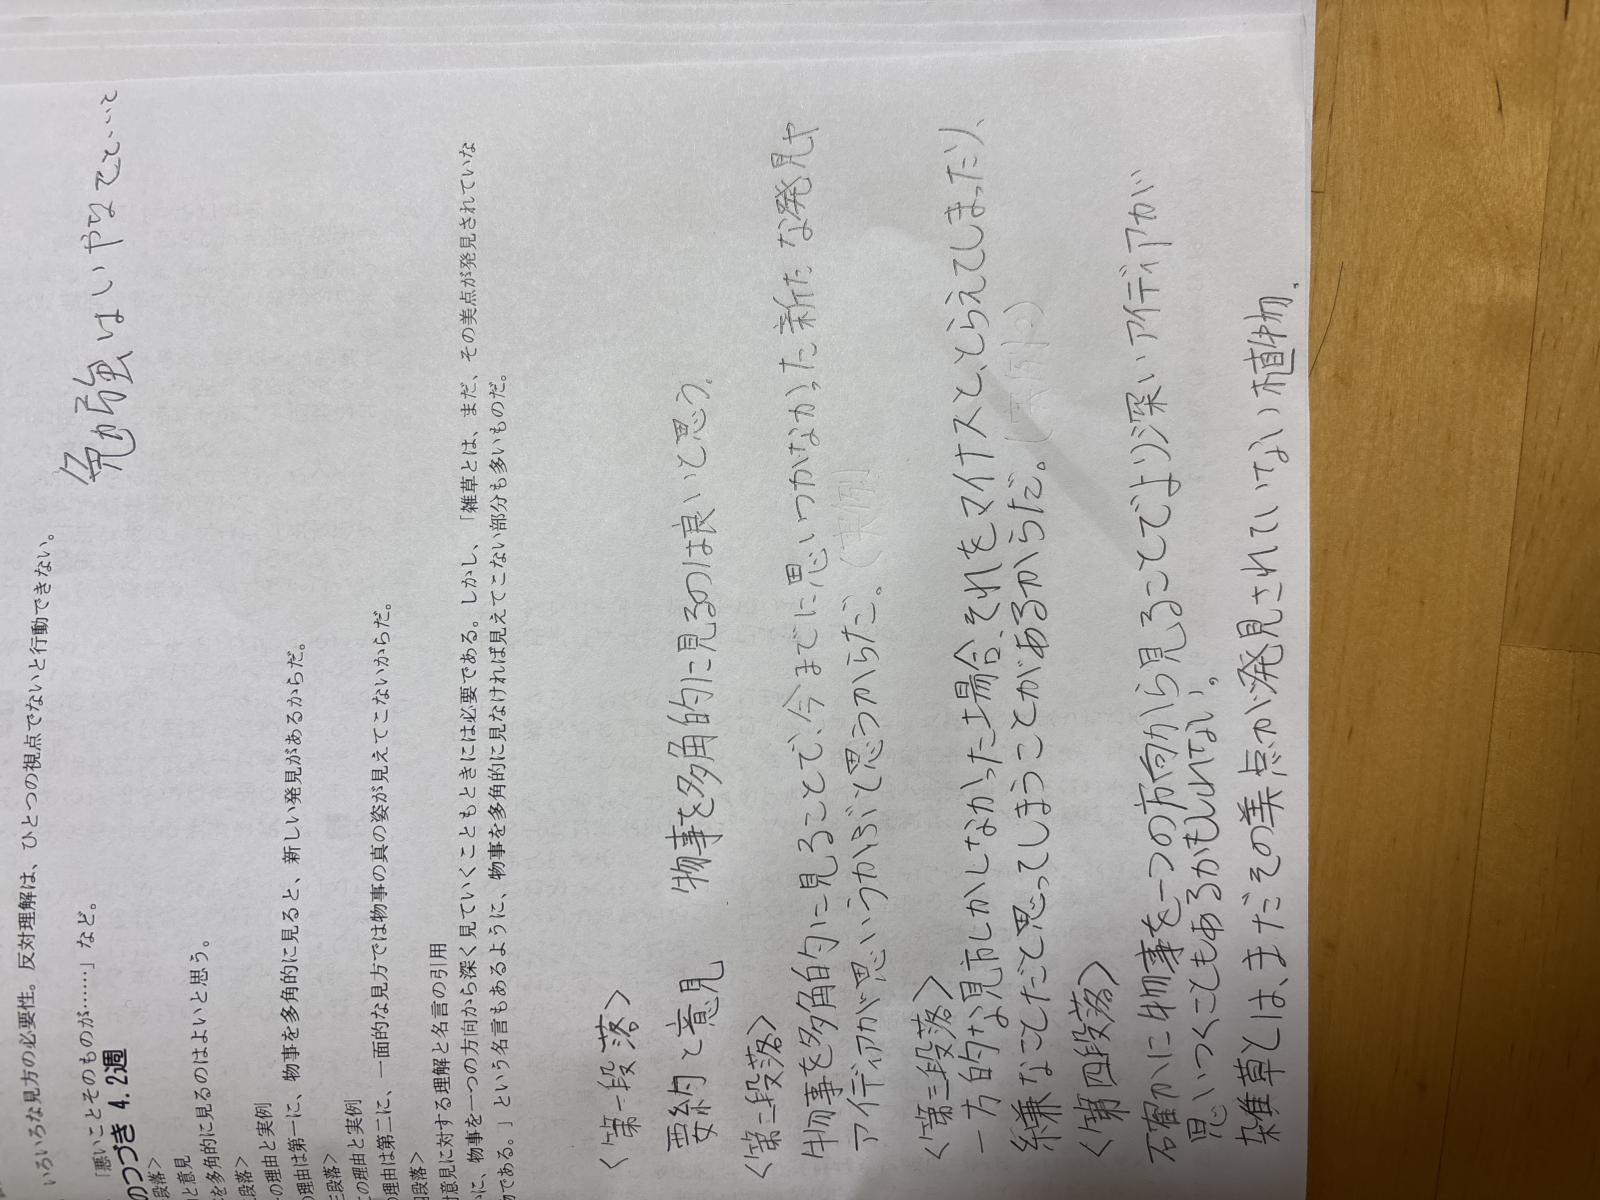 いろいろな見方の必要性。反対理解は、ひとつの視点でないと行動できない。
「悪いことそのものが……」など。
勉強はいやなこと…と
のつづき 4.2週
段落>
と意見
を多角的に見るのはよいと思う。
段落>
の理由と実例
の理由は第一に、物事を多角的に見ると、新しい発見があるからだ。
三段落>
の理由と実例
の理由は第二に、一面的な見方では物事の真の姿が見えてこないからだ。
四段落>
対意見に対する理解と名言の引用
かに、物事を一つの方向から深く見ていくこともときには必要である。しかし、「雑草とは、まだ、その美点が発見されていな
物である。」という名言もあるように、物事を多角的に見なければ見えてこない部分も多いものだ。
<第一段落>
要約と意見 物事を多角的に見るのは良いと思う。
<第二段落>
物事を多角的に見ることで、今までに思いつかなかった新たな発見や
アイディアが思いうかぶと思うからだ。(実例)
<第三段落>
一方的な見方しかしなかった場合、それをマイナスと、とらえてしまったり、
嫌なことだと思ってしまうことがあるからだ。(実例。)
<第四段落>
石確かに物事を一つの方向から見ることでより深いアイディアが
思いつくこともあるかもしれない。
雑草とは、まだその美点が発見されていない植物。